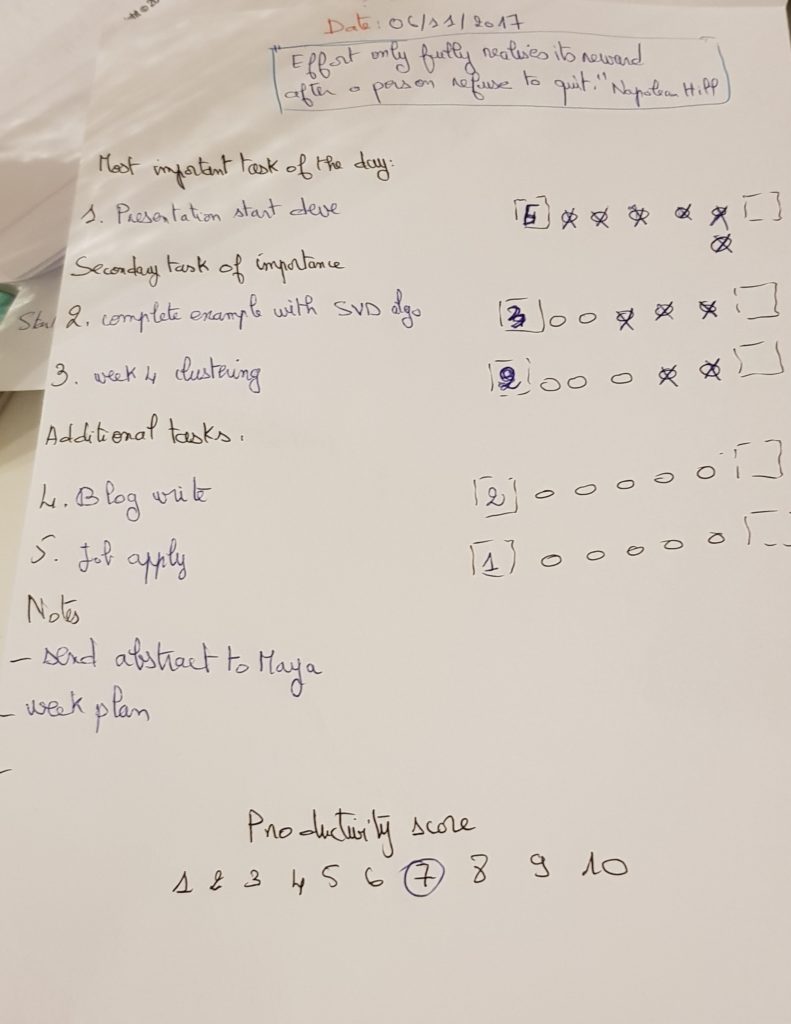 Date: 06/11/2017
"Effort only fully realises its reward
after a person refuse to quit." Napolean Hill
Most important task of the day:
1. Presentation start deve
Secondary task of importance
2. complete example with SVD algo [3]
3. week 4 clustering
Additional tasks.
4. Blog write [2]
5. Job apply [1]
Notes
- send abstract to Maya
- week plan
-
Productivity score
1 2 3 4 5 6 7 8 9 10